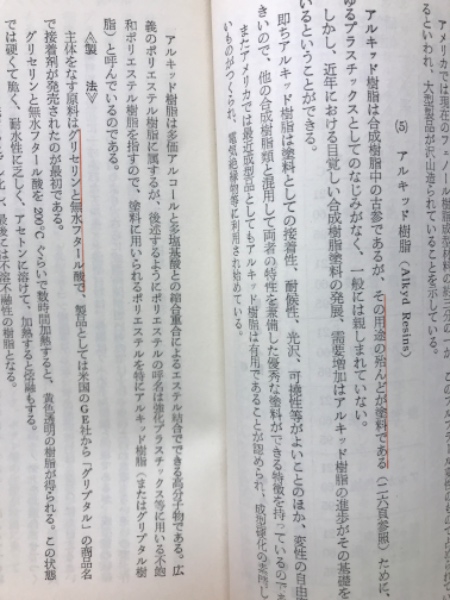 アメリカでは現在のフェノール樹脂成型材料の約三分の一が
るといわれ、大型製品が沢山造られていることを示している。
(5) アルキッド樹脂 (Alkyd Resins)
アルキッド樹脂は合成樹脂中の古参であるが、その用途の殆んどが塗料である(二六頁参照)ために、
ゆるプラスチックスとしてのなじみがなく、一般には親しまれていない。
しかし、近年における目覚しい合成樹脂塗料の発展、需要増加はアルキッド樹脂の進歩がその基礎を
いるということができる。
即ちアルキッド樹脂は塗料としての接着性、耐候性、光沢、可撓性等がよいことのほか、変性の自由
きいので、他の合成樹脂類と混用して両者の特性を兼備した優秀な塗料ができる特徴を持っているのであ
またアメリカでは最近成型品としてもアルキッド樹脂は有用であることが認められ、成型硬化の
いものがつくられ、電気絶縁物等に利用され始めている。
アルキッド樹脂は多価アルコールと多塩基酸との縮合重合によるエステル結合でできる高分子物である。広
義のポリエステル樹脂に属するが、後述するようにポリエステルの呼名は強化プラスチックス等に用いる不飽
和ポリエステル樹脂を指すので、塗料に用いられるポリエステルを特にアルキッド樹脂(またはグリプタル樹
脂)と呼んでいるのである。
≪製 法≫
主体をなす原料はグリセリンと無水フタール酸で、製品としては米国のGE社から「グリプタル」の商品名
で接着剤が発売されたのが最初である。
グリセリンと無水フタール酸を 200°C ぐらいで数時間加熱すると、黄色透明の樹脂が得られる。この状態
では硬くて脆く、耐水性に乏しく、アセトンに溶けて、加熱すると溶融もする。
最後には不溶不融性の樹脂となる。